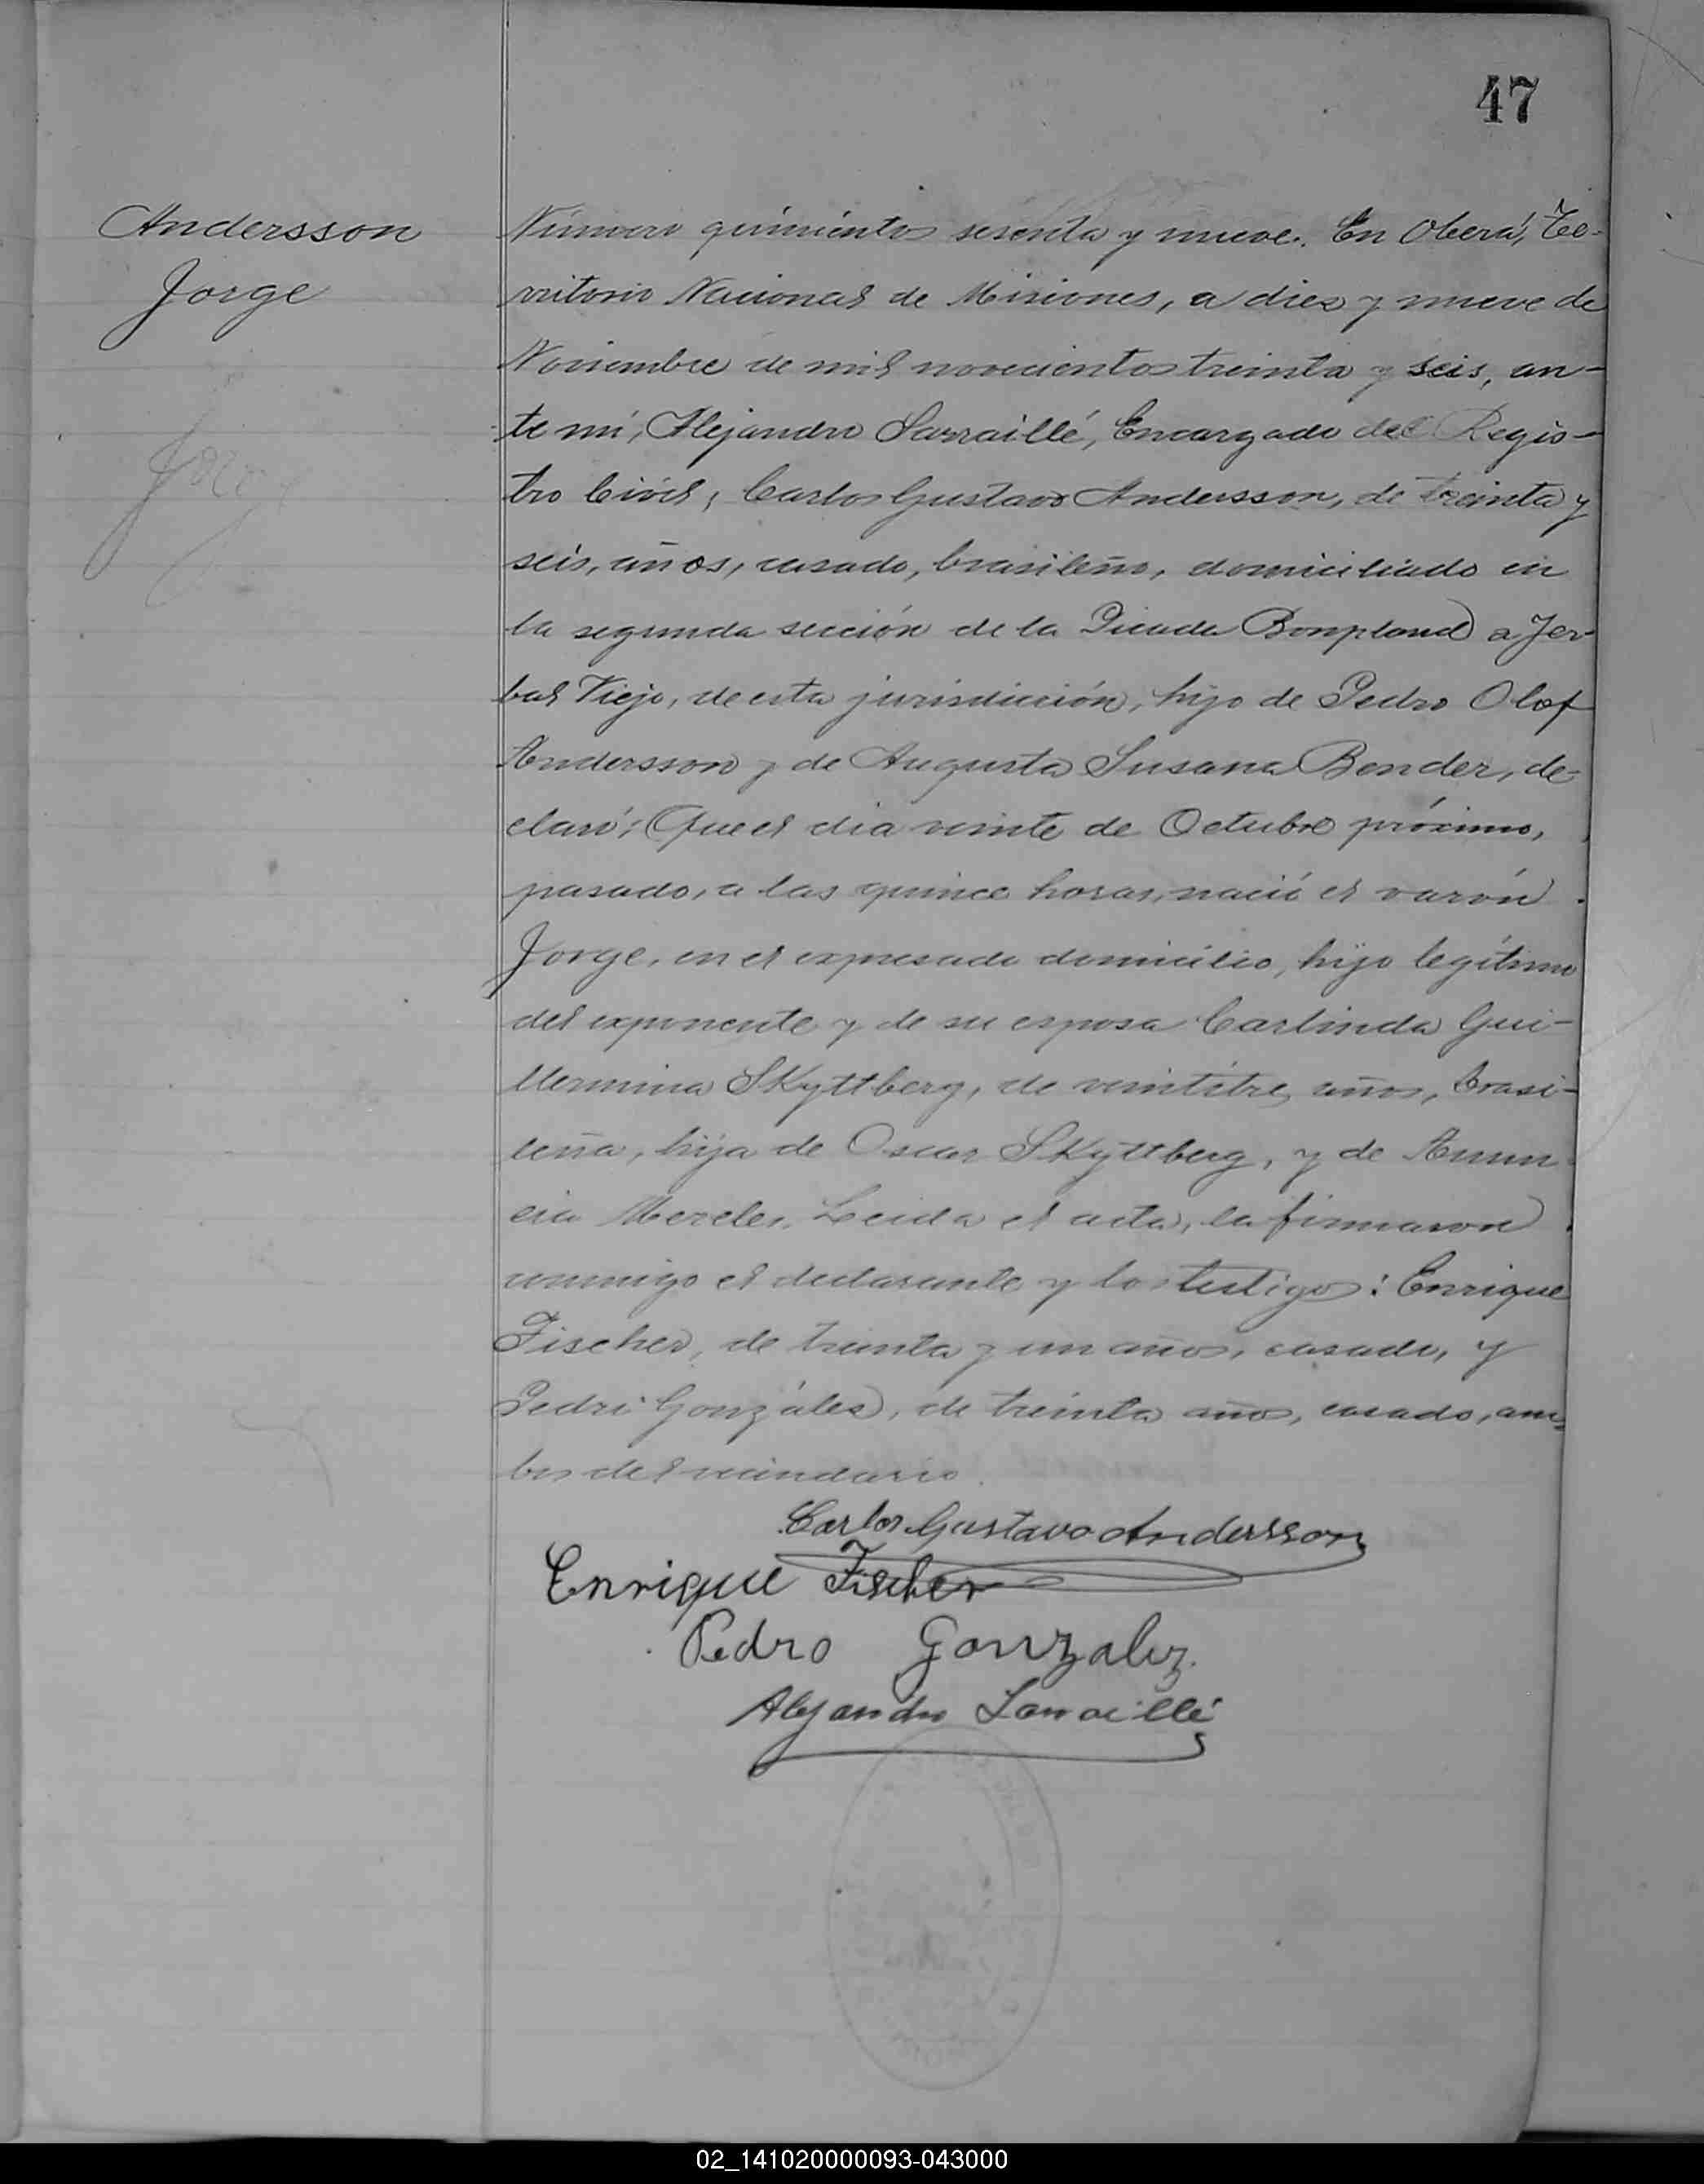 47
Andersson
Jorge
Número quinientos sesenta y nueve. En Oberá, Te-
rritorio Nacional de Misiones, a diez y nueve de
Noviembre de mil novecientos treinta y seis, an-
te mí, Alejandro Sarraillé, Encargado del Regis-
tro Civil, Carlos Gustavo Andersson, de treinta y
seis, años, casado, brasileño, domiciliado en
la segunda sección de la Picada Bonpland a Yer-
bal Viejo, de esta jurisdicción, hijo de Pedro Olof
Andersson y de Augusta Susana Bender, de-
claró: Que el día veinte de Octubre próximo,
pasado, a las quince horas, nació el varón
Jorge, en el expresado domicilio, hijo legítimo
del exponente y de su esposa Carlinda Gui-
llermina Skyttberg, de veintitres años, brasi-
leña, hija de Oscar Skyttberg, y de Anun-
cia Mereles. Leída el acta, la firmaron
conmigo el declarante y los testigos: Enrique
Fischer, de treinta y un años, casado, y
Pedro Gonzáles, de treinta años, casado, am-
bos del vecindario.
Carlos Gustavo Andersson
Enrique Fischer
Pedro Gonzalez
Alejandro Sarraillé
02_141020000093-043000